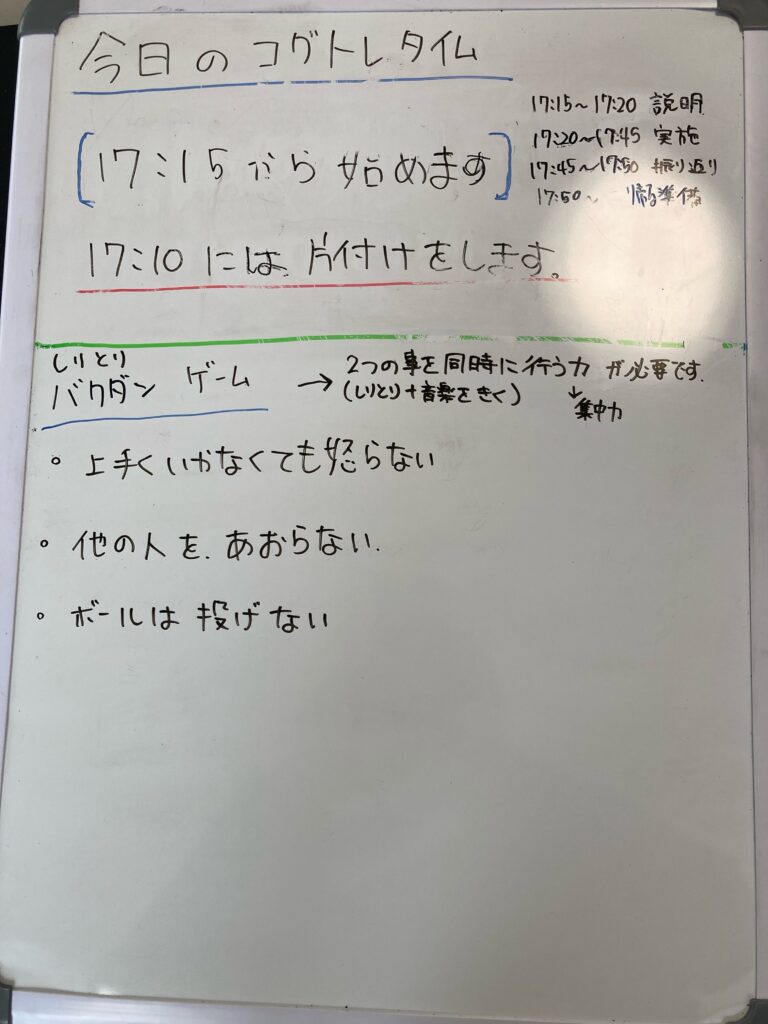 今日のコグトレタイム
17:15~17:20 説明
17:20~17:45 実施
17:45~17:50 振り返り
17:50~ 帰る準備
[17:15から始めます]
17:10には片付けをします。
しりとり
バクダン ゲーム
→ 2つの事を同時に行う力が必要です.
(しりとり+音楽をきく)
↓
集中力
◦ 上手くいかなくても怒らない
◦ 他の人を.あおらない.
◦ ボールは投げない